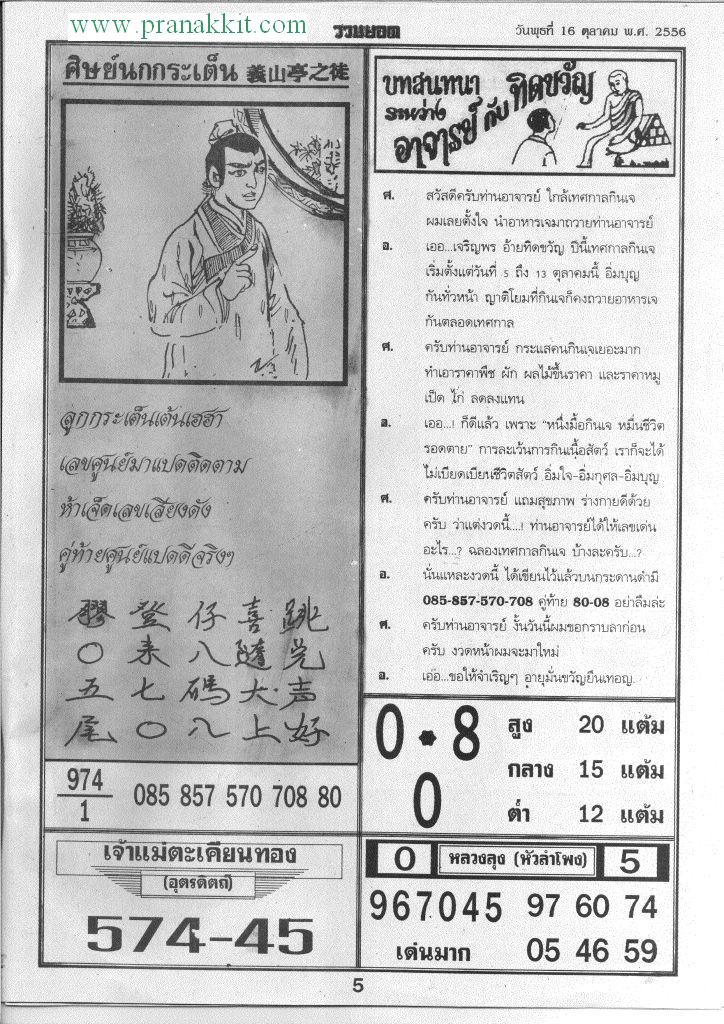 www.pranakkit.com
รวมยอด
วันพุธที่ 16 ตุลาคม พ.ศ. 2556
ศิษย์นกกระเต็น 義山亭之徒
ลูกกระเด็นเต้นเฮฮา
เลขศูนย์มาแปดติดตาม
ห้าเจ็ดเลขเสียงดัง
คู่ท้ายศูนย์แปดดีจริงๆ
膠 登 仔 喜 跳
〇 来 八 隨 兇
五 七 碼 大 声
尾 〇 八 上 好
974
1
085 857 570 708 80
เจ้าแม่ตะเคียนทอง
(อุตรดิตถ์)
574-45
บทสนทนา
ระหว่าง
อาจารย์ กับ ทิดขวัญ
ศ. สวัสดีครับท่านอาจารย์ ใกล้เทศกาลกินเจ
ผมเลยตั้งใจ นำอาหารเจมาถวายท่านอาจารย์
อ. เออ...เจริญพร อ้ายทิดขวัญ ปีนี้เทศกาลกินเจ
เริ่มตั้งแต่วันที่ 5 ถึง 13 ตุลาคมนี้ อิ่มบุญ
กันทั่วหน้า ญาติโยมที่กินเจก็คงถวายอาหารเจ
กันตลอดเทศกาล
ศ. ครับท่านอาจารย์ กระแสคนกินเจเยอะมาก
ทำเอาราคาพืช ผัก ผลไม้ขึ้นราคา และราคาหมู
เป็ด ไก่ ลดลงแทน
อ. เออ...! ก็ดีแล้ว เพราะ "หนึ่งมื้อกินเจ หมื่นชีวิต
รอดตาย" การละเว้นการกินเนื้อสัตว์ เราก็จะได้
ไม่เบียดเบียนชีวิตสัตว์ อิ่มใจ-อิ่มกุศล-อิ่มบุญ
ศ. ครับท่านอาจารย์ แถมสุขภาพ ร่างกายดีด้วย
ครับ ว่าแต่งวดนี้....! ท่านอาจารย์ได้ให้เลขเด่น
อะไร...? ฉลองเทศกาลกินเจ บ้างละครับ...?
อ. นั่นแหละงวดนี้ ได้เขียนไว้แล้วบนกระดานดำมี
085-857-570-708 คู่ท้าย 80-08 อย่าลืมล่ะ
ศ. ครับท่านอาจารย์ งั้นวันนี้ผมขอกราบลาก่อน
ครับ งวดหน้าผมจะมาใหม่
อ. เอ้อ...ขอให้จำเริญๆ อายุมั่นขวัญยืนเทอญ.
0 • 8
0
สูง 20 แต้ม
กลาง 15 แต้ม
ต่ำ 12 แต้ม
0 หลวงลุง (หัวลำโพง) 5
967045 97 60 74
เด่นมาก 05 46 59
5